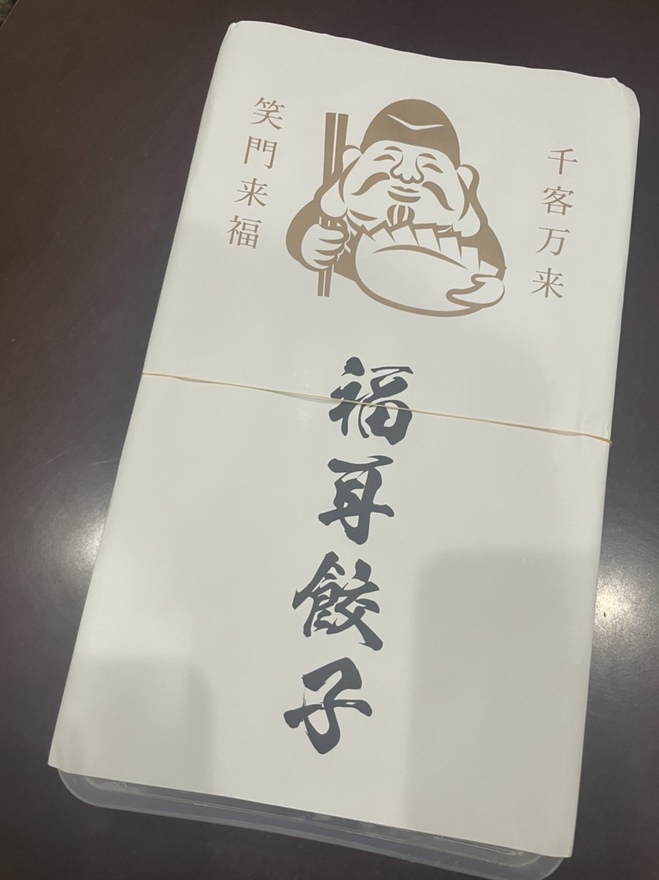 千客万来
笑門来福
福耳餃子